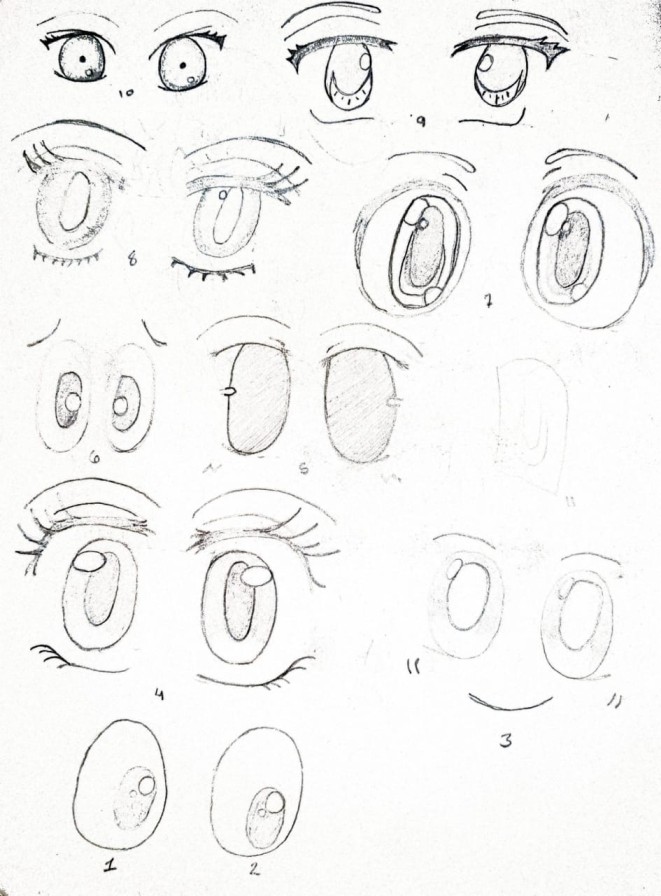 10
9
8
7
6
5
4
3
1 2